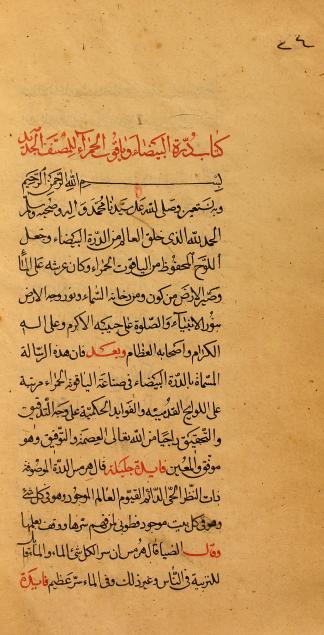 ٣٤
كتاب درة البيضاء وياقوت الحمراء للمصنف الجديد
بسم الله الرحمن الرحيم
وبه نستعين وصلى الله على سيدنا محمد وآله وصحبه وسلم
الحمد لله الذى خلق العالم من الدرة البيضاء وجعل
اللوح المحفوظ من الياقوت الحمراء وكان عرشه على الماء
وصير الارض من كون ومن دخانه السماء ونور وجه الارض
بنور الانبياء والصلوة على حبيبه الاكرم وعلى اله
الكرام واصحابه العظام وبعد فان هذه الرسالة
المسماة بالدرة البيضاء فى صناعة الياقوتة الحمراء مرتبة
على اللوايح القدسية والفوايد الحكمية على وجه التدقيق
والتحقيق راجيا من الله تعالى العصمة والتوفيق وهو
موفق والمعين فايدة جليلة قال هرمس الدرة الموصوفة
بذات النظر الحى الدائم القيوم العالم الموجود وهو فى كل شئ
وهو فى كل بيت موجود فطوبى لمن فهم سرها ووفقه بعلمها
وقال ايضا قال هرمس ان سر الكل شئ الماء والماء
للتربية فى الناس وغير ذلك وفى الماء سر عظيم فايدة